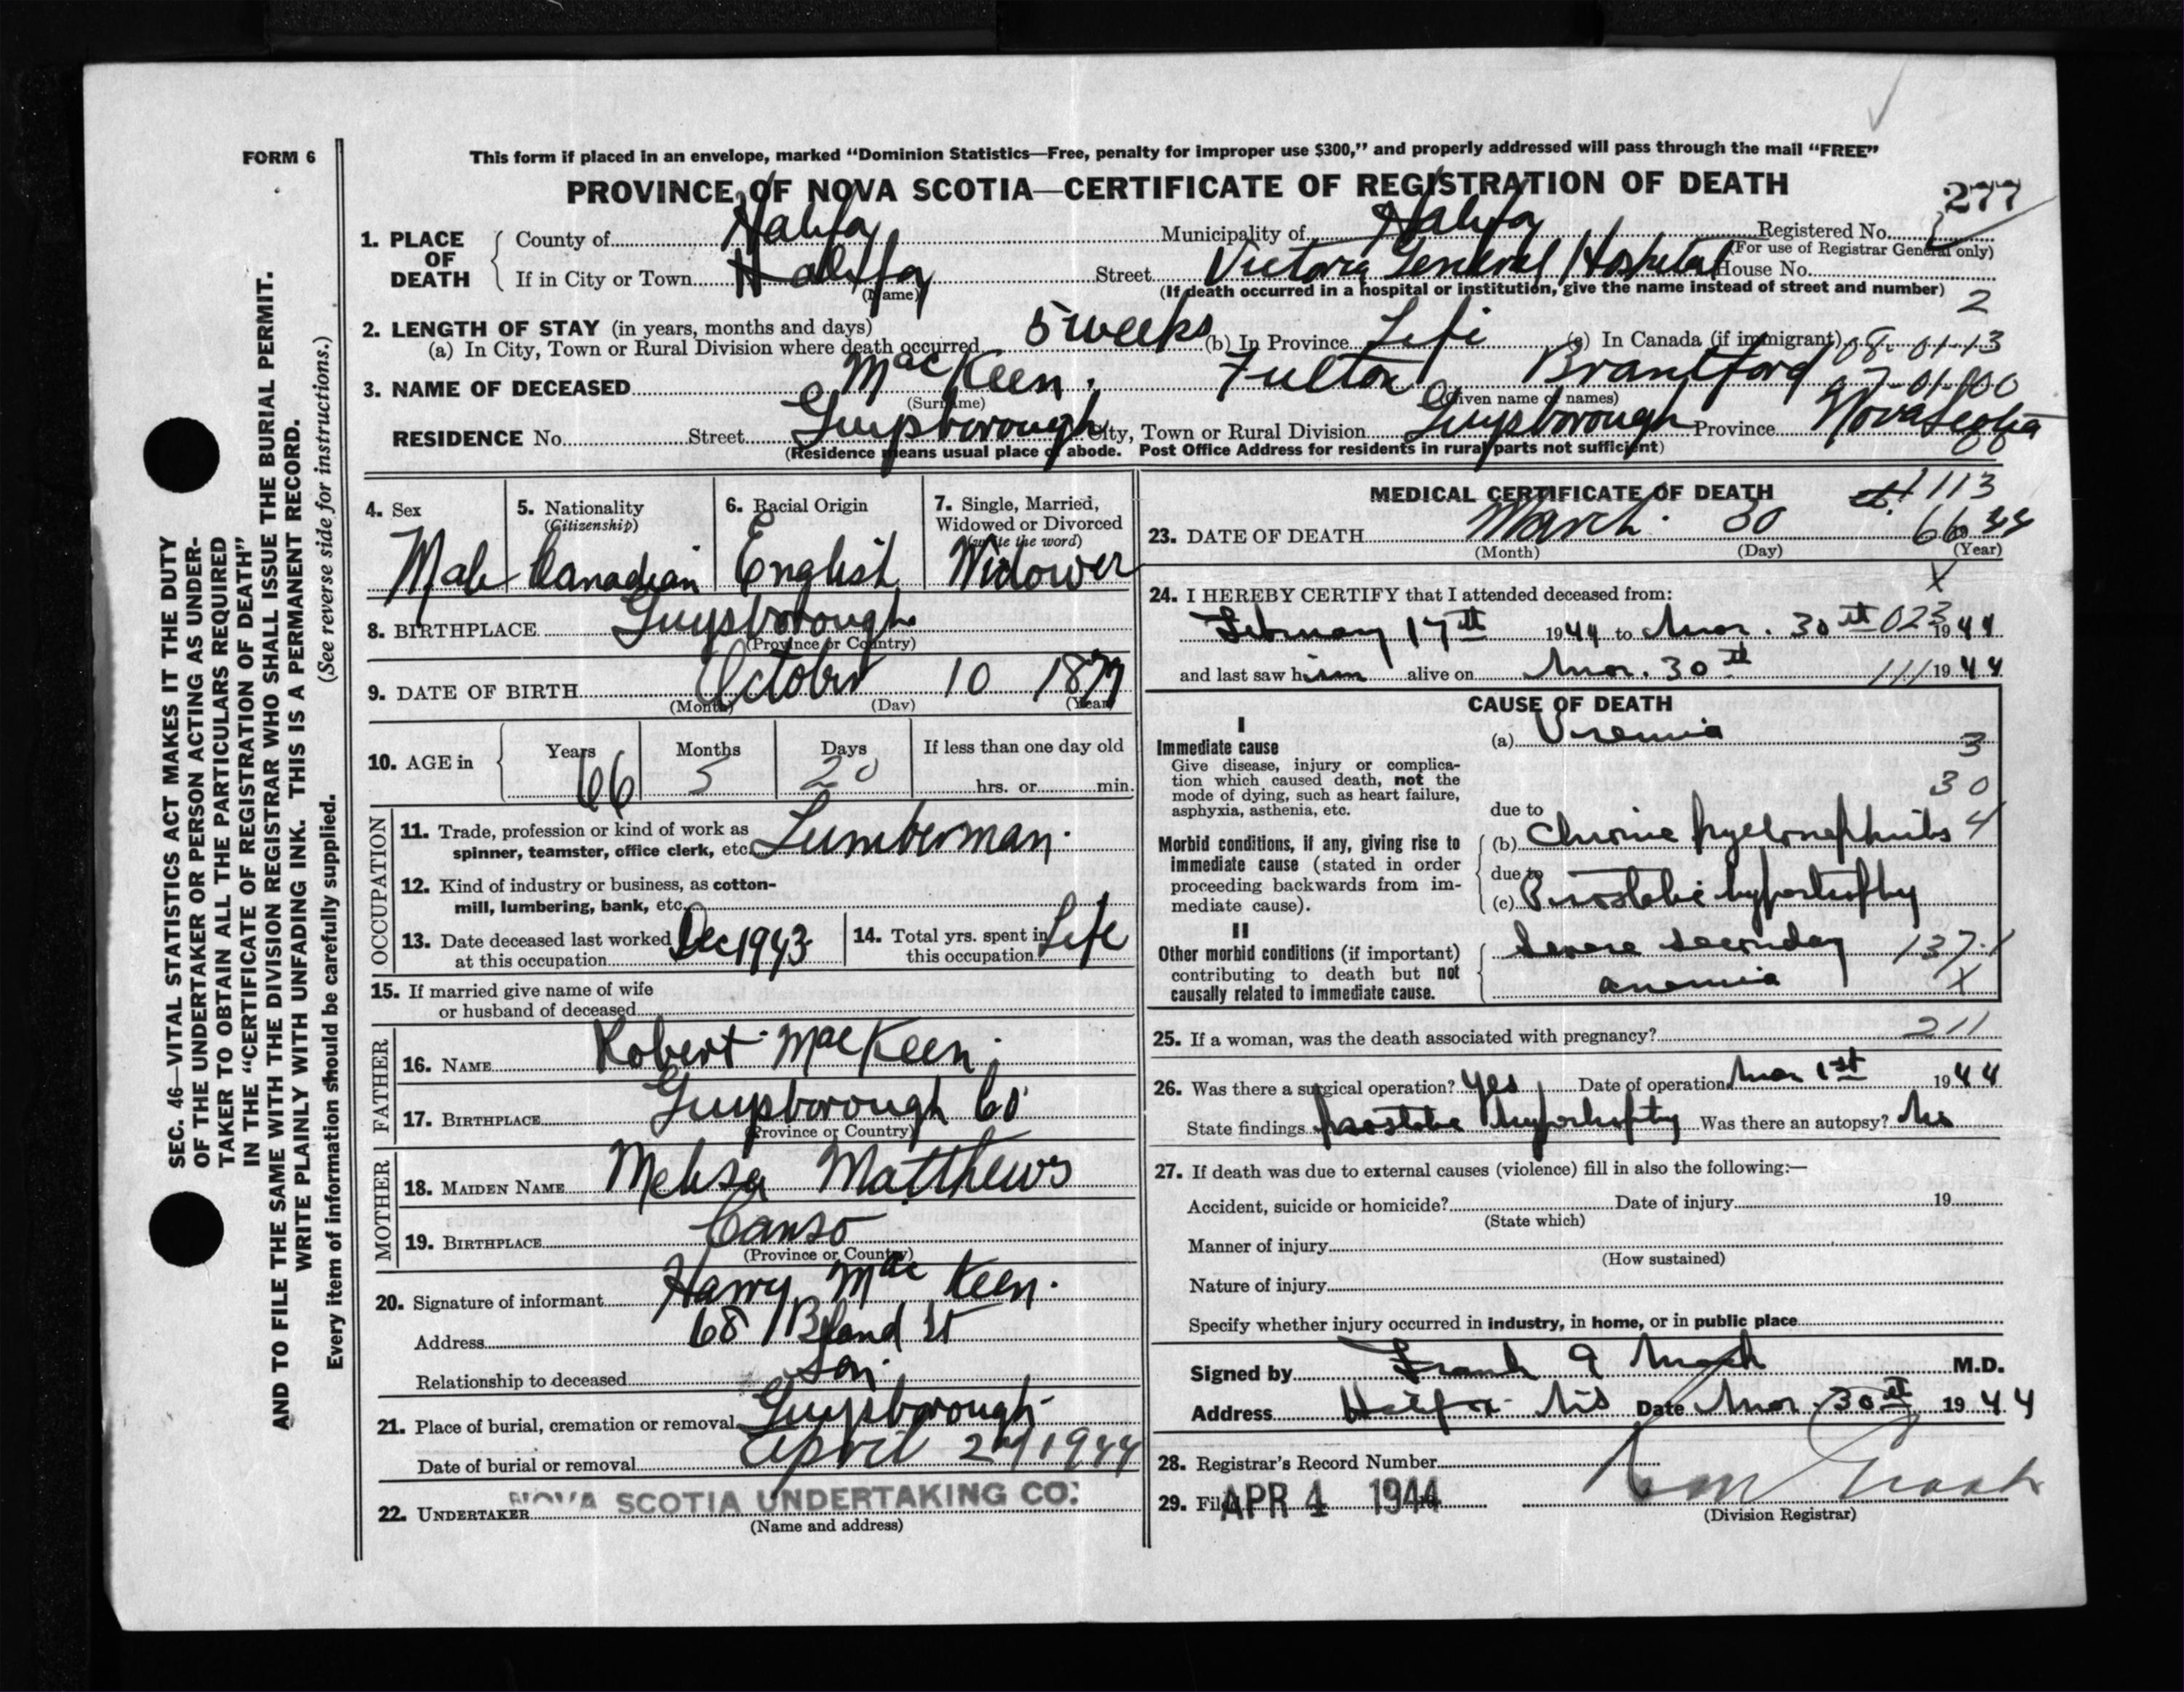 FORM 6
This form if placed in an envelope, marked "Dominion Statistics—Free, penalty for improper use $300," and properly addressed will pass through the mail "FREE"
PROVINCE OF NOVA SCOTIA—CERTIFICATE OF REGISTRATION OF DEATH
277
1. PLACE OF DEATH
County of Halifax Municipality of Halifax Registered No.
(For use of Registrar General only)
If in City or Town Halifax Street Victoria General Hospital House No.
(Name) (If death occurred in a hospital or institution, give the name instead of street and number)
2
2. LENGTH OF STAY (in years, months and days)
(a) In City, Town or Rural Division where death occurred 5 weeks (b) In Province Life (c) In Canada (if immigrant) 08-01-13
3. NAME OF DECEASED MacKeen, Fulton Brantford 07-01-000
(Surname) (Given name or names)
RESIDENCE No. Street Guysborough City, Town or Rural Division Guysborough Province Nova Scotia
(Residence means usual place of abode. Post Office Address for residents in rural parts not sufficient)
4. Sex Male
5. Nationality (Citizenship) Canadian
6. Racial Origin English
7. Single, Married, Widowed or Divorced (write the word) Widower
8. BIRTHPLACE Guysborough
(Province or Country)
9. DATE OF BIRTH October 10 1877
(Month) (Day) (Year)
10. AGE in Years 66 Months 5 Days 20 If less than one day old hrs. or min.
OCCUPATION
11. Trade, profession or kind of work as Lumberman
spinner, teamster, office clerk, etc.
12. Kind of industry or business, as cotton-
mill, lumbering, bank, etc.
13. Date deceased last worked at this occupation Dec 1943
14. Total yrs. spent in this occupation Life
15. If married give name of wife
or husband of deceased
FATHER
16. NAME Robert MacKeen
17. BIRTHPLACE Guysborough Co
(Province or Country)
MOTHER
18. MAIDEN NAME Melisa Matthews
19. BIRTHPLACE Canso
(Province or Country)
20. Signature of informant Harry MacKeen.
Address 68 Bland St
Relationship to deceased Son
21. Place of burial, cremation or removal Guysborough
Date of burial or removal April 2nd 1944
22. UNDERTAKER NOVA SCOTIA UNDERTAKING CO.
(Name and address)
MEDICAL CERTIFICATE OF DEATH 1113
23. DATE OF DEATH March 30 66 44
(Month) (Day) (Year)
X
24. I HEREBY CERTIFY that I attended deceased from:
February 17th 1944 to Mar. 30th 023 1944
and last saw him alive on Mar. 30th 111 1944
CAUSE OF DEATH
I
Immediate cause (a) Uremia 3
Give disease, injury or complica-
tion which caused death, not the
mode of dying, such as heart failure,
asphyxia, asthenia, etc.
30
due to
Morbid conditions, if any, giving rise to
immediate cause (stated in order
proceeding backwards from im-
mediate cause).
(b) Chronic pyelonephritis 4
due to
(c) Prostatic hypertrophy
II
Other morbid conditions (if important)
contributing to death but not
causally related to immediate cause.
Severe secondary 137.1
anemia X
25. If a woman, was the death associated with pregnancy? 211
26. Was there a surgical operation? Yes Date of operation Mar 1st 1944
State findings Prostatic hypertrophy Was there an autopsy? No
27. If death was due to external causes (violence) fill in also the following:—
Accident, suicide or homicide? Date of injury 19
(State which)
Manner of injury
(How sustained)
Nature of injury
Specify whether injury occurred in industry, in home, or in public place
Signed by Frank G Mack M.D.
Address Halifax NS Date Mar. 30th 1944
28. Registrar's Record Number
29. Filed APR 1 1944
(Division Registrar)
SEC. 46—VITAL STATISTICS ACT MAKES IT THE DUTY
OF THE UNDERTAKER OR PERSON ACTING AS UNDER-
TAKER TO OBTAIN ALL THE PARTICULARS REQUIRED
IN THE "CERTIFICATE OF REGISTRATION OF DEATH"
AND TO FILE THE SAME WITH THE DIVISION REGISTRAR WHO SHALL ISSUE THE BURIAL PERMIT.
WRITE PLAINLY WITH UNFADING INK. THIS IS A PERMANENT RECORD.
Every item of information should be carefully supplied. (See reverse side for instructions.)